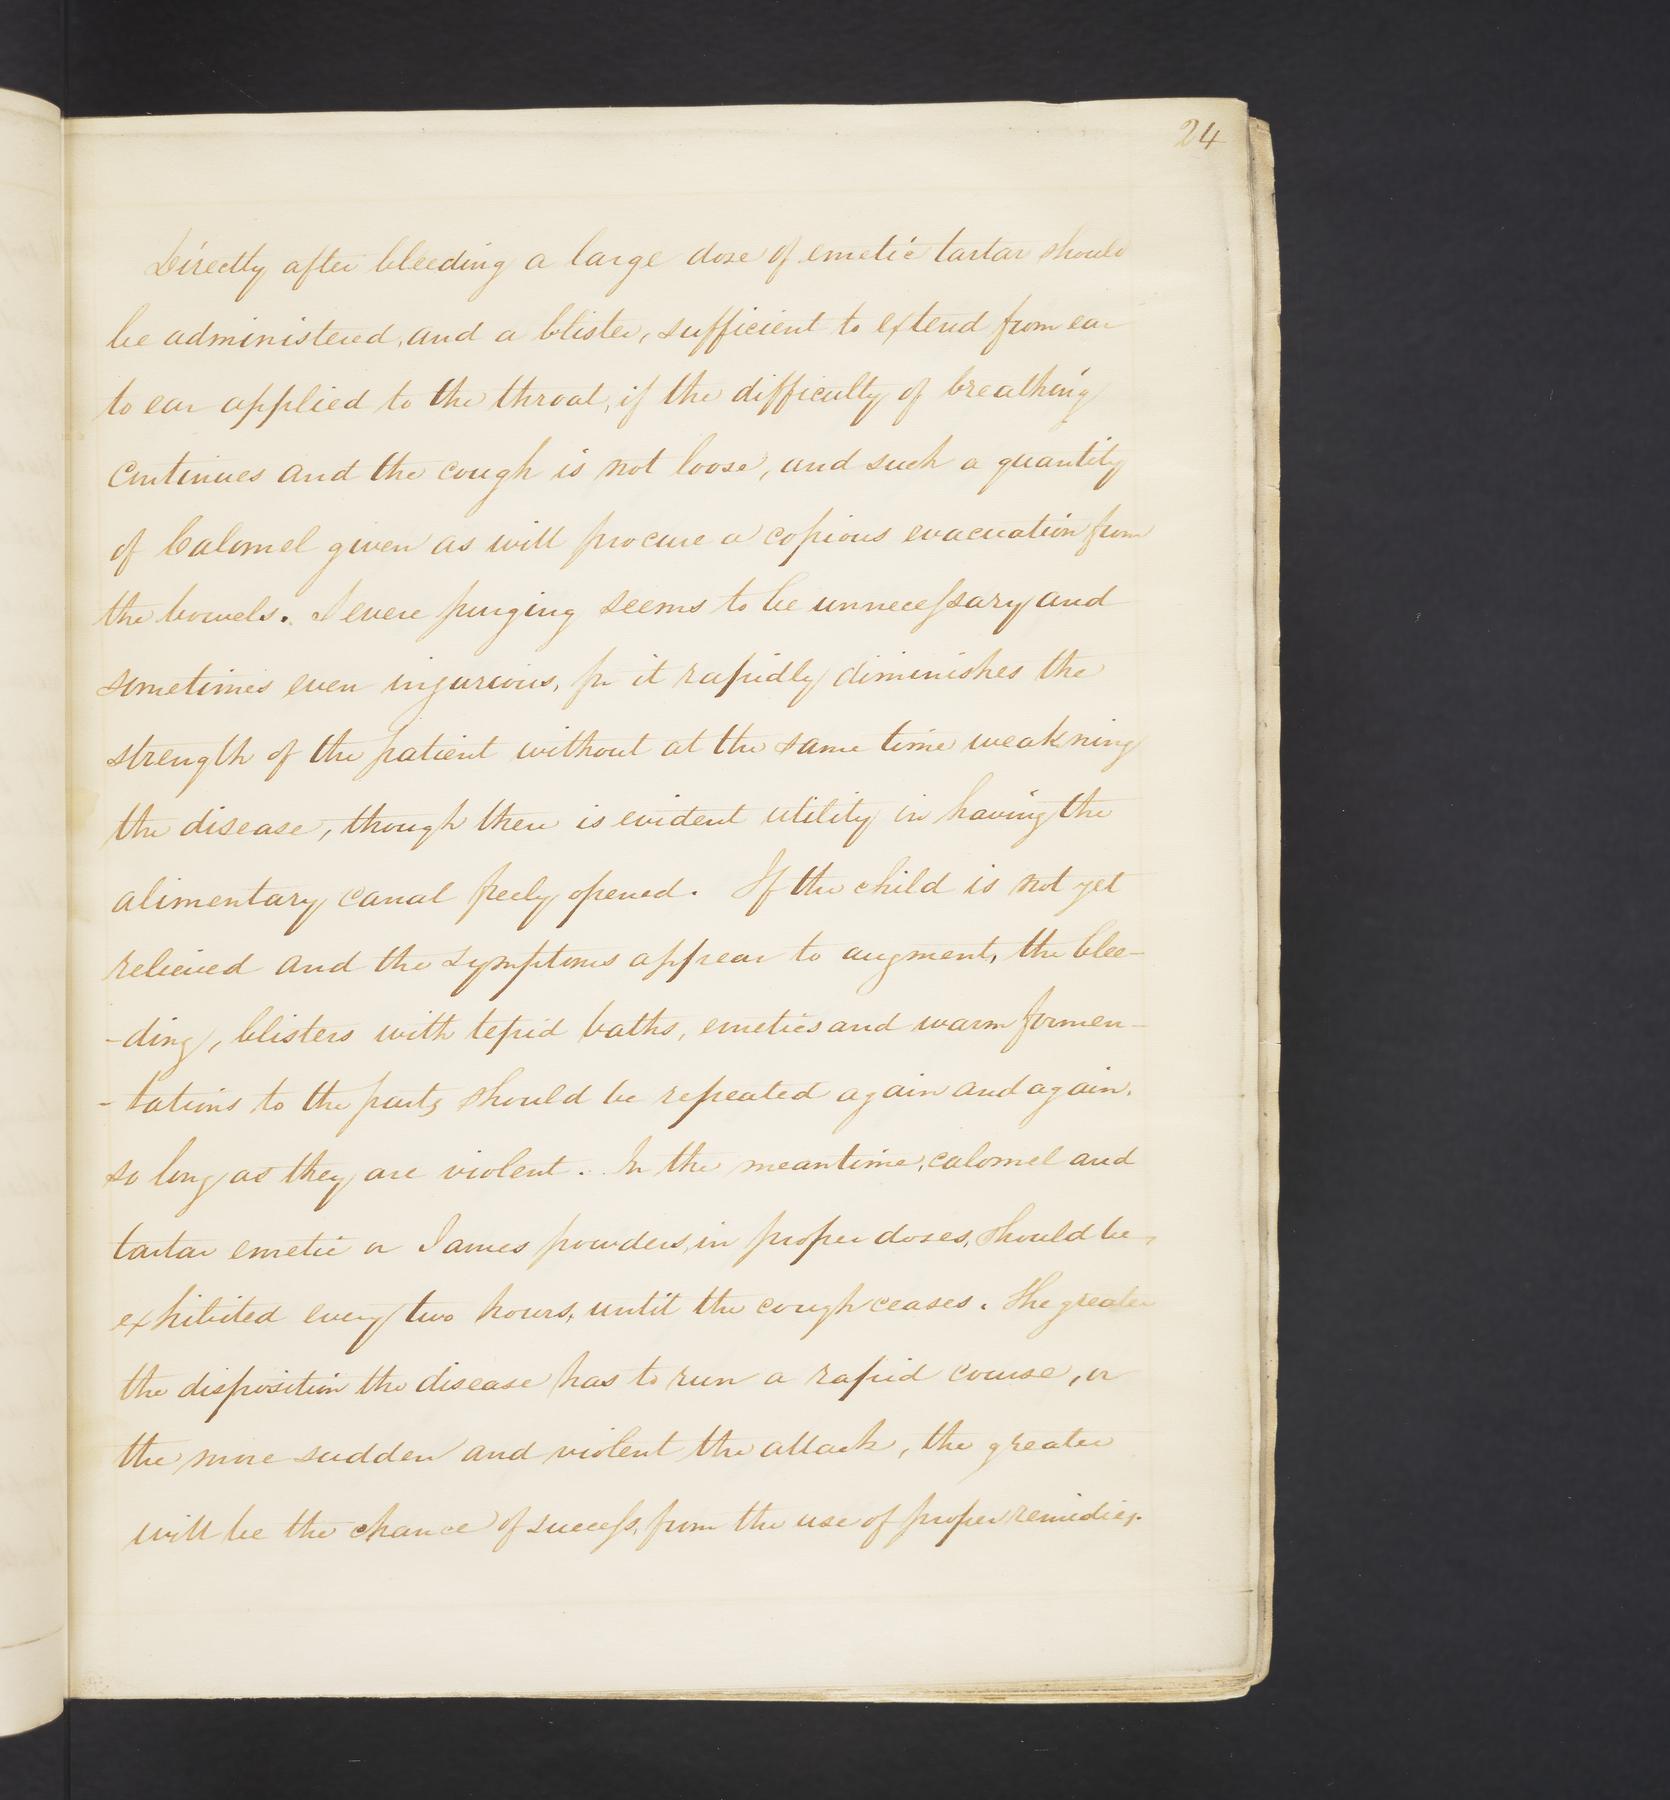 24
Directly after bleeding a large dose of emetic tartar should
be administered, and a blister, sufficient to extend from ear
to ear applied to the throat, if the difficulty of breathing
continues and the cough is not loose, and such a quantity
of Calomel given as will procure a copious evacuation from
the bowels. Severe purging seems to be unnecessary and
sometimes even injurious, for it rapidly diminishes the
strength of the patient without at the same time weakning
the disease, though there is evident utility in having the
alimentary canal freely opened. If the child is not yet
relieved and the symptoms appear to augment, the blee-
-ding, blisters with tepid baths, emetics and warm fomen-
-tations to the parts should be repeated again and again,
so long as they are violent. In the meantime, calomel and
tartar emetic or James powders, in proper doses, should be
exhibited every two hours, until the cough ceases. The greater
the disposition the disease has to run a rapid course, or
the more sudden and violent the attack, the greater
will be the chance of success, from the use of proper remedies.